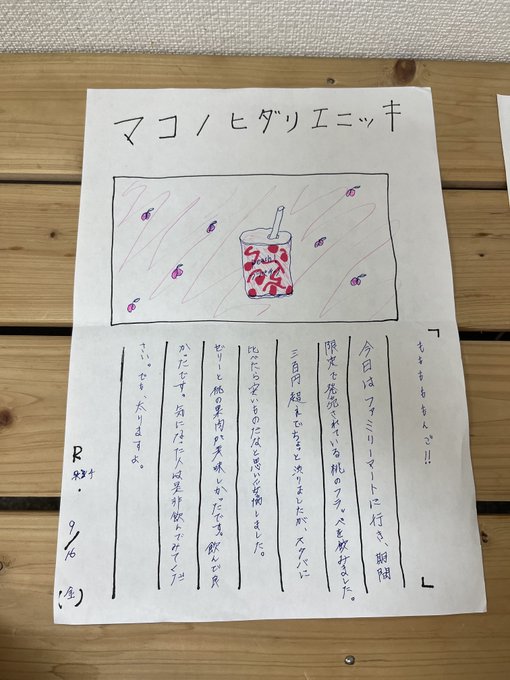 マコノヒダリエニッキ
Peach!
「ももももももんご!!」
今日はファミリーマートに行き、期間
限定で発売されている桃のフラッペを飲みました。
三百円超えでちょっと渋りましたが、スタバに
比べたら安いものだなと思い奮発しました。
ゼリーと桃の果肉が美味しかったです。飲んで良
かったです。気になった人は是非飲んでみてくだ
さい。でも、太りますよ。
R
9/16
(金)